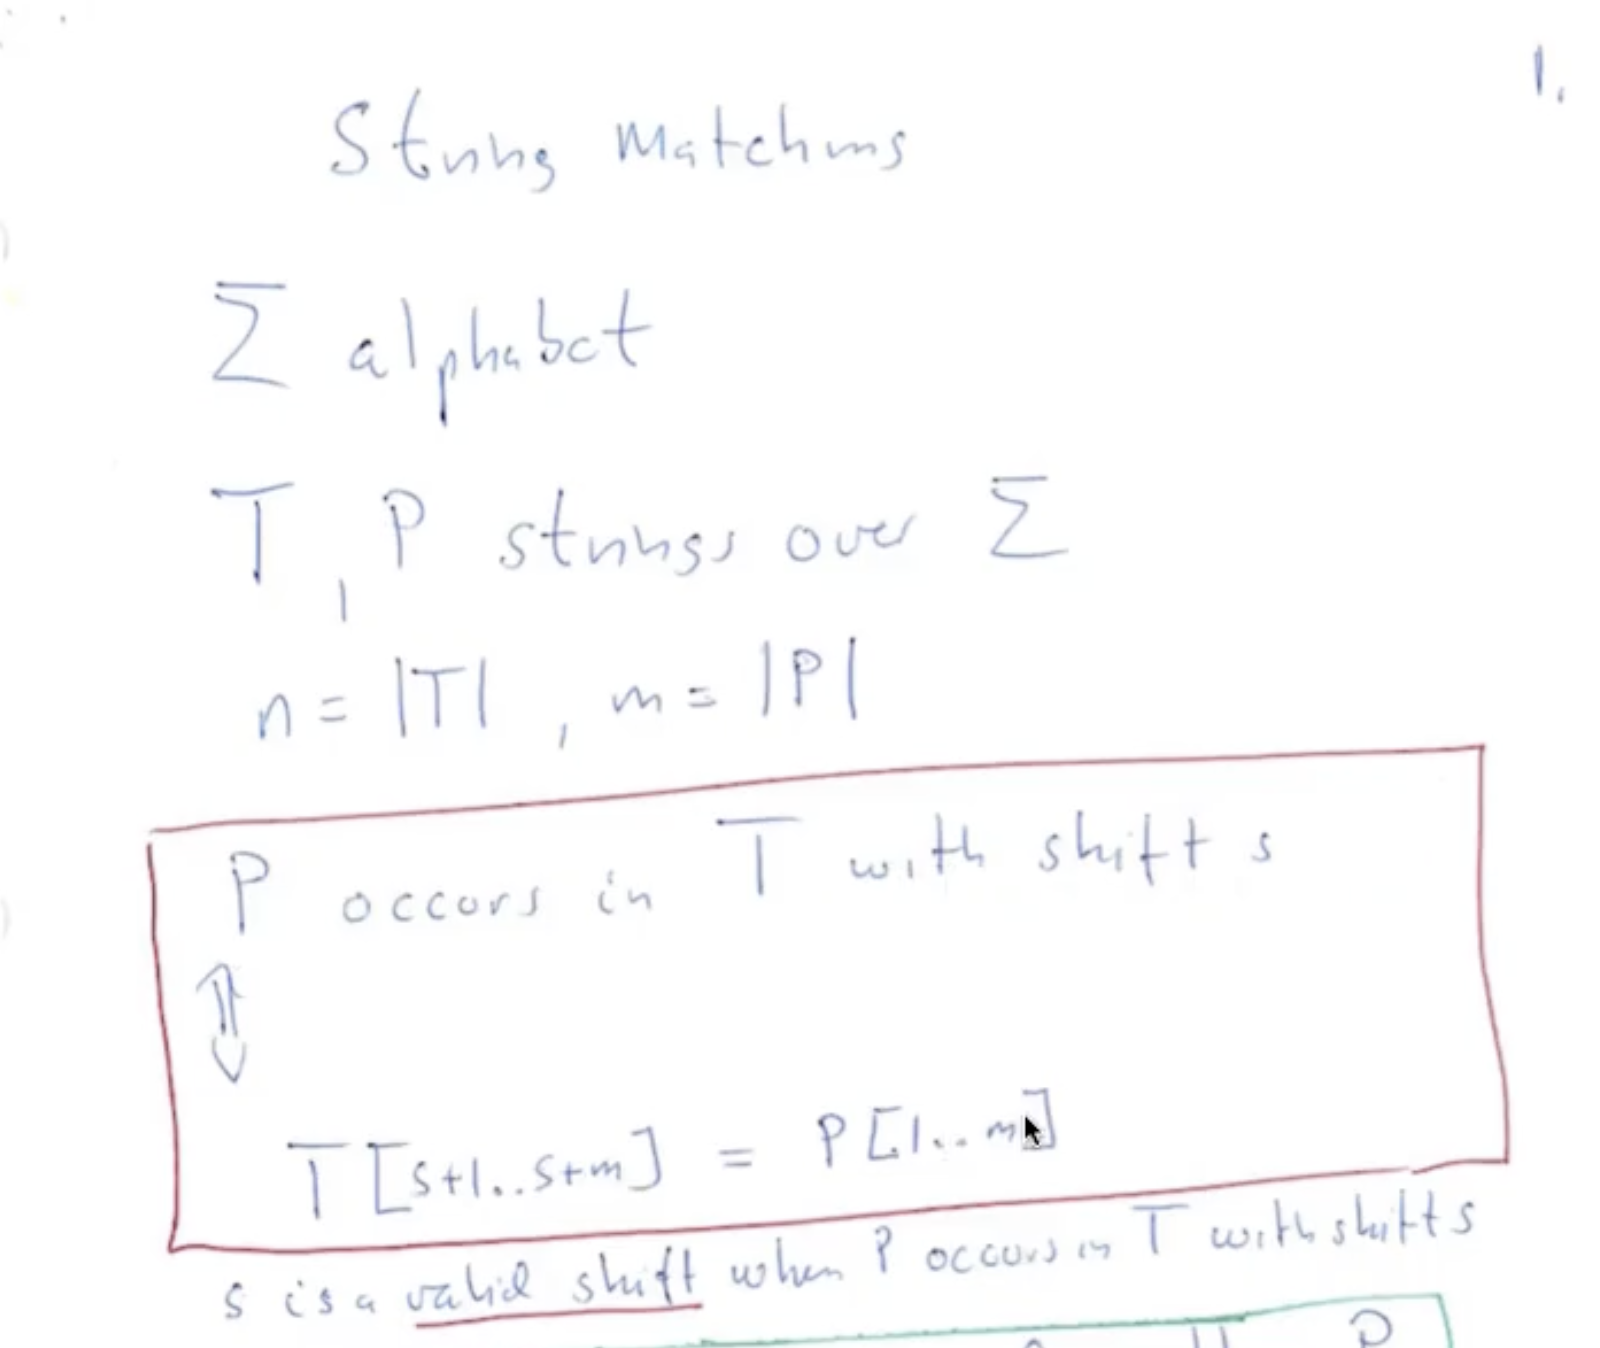 1.
String Matching
Σ alphabet
T, P strings over Σ
n = |T| , m = |P|
P occurs in T with shift s
⇕
T[s+1..s+m] = P[1..m]
s is a valid shift when P occurs in T with shift s
P